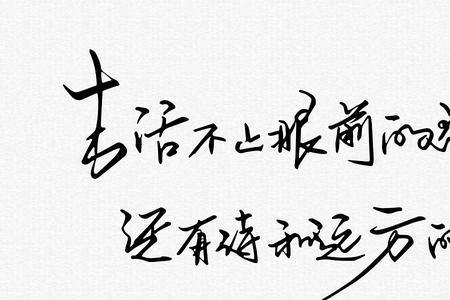 生活不止眼前的
还有诗和远方的